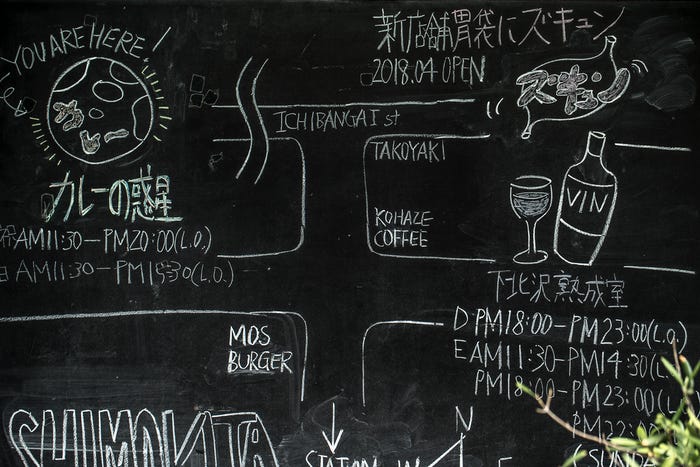 YOU ARE HERE!
カレーの惑星
AM11:30-PM20:00(L.O.)
AM11:30-PM15:30(L.O.)
新店舗胃袋にズキュン
2018.04 OPEN
ズキュン
ICHIBANGAI st
TAKOYAKI
KOHAZE
COFFEE
VIN
下北沢熟成室
D:PM18:00-PM23:00(L.O.)
E AM11:30-PM14:30(L
PM18:00-PM23:00(L
PM22:00
SUNDA
MOS
BURGER
SHIMOKITA
STATION
N
W
E